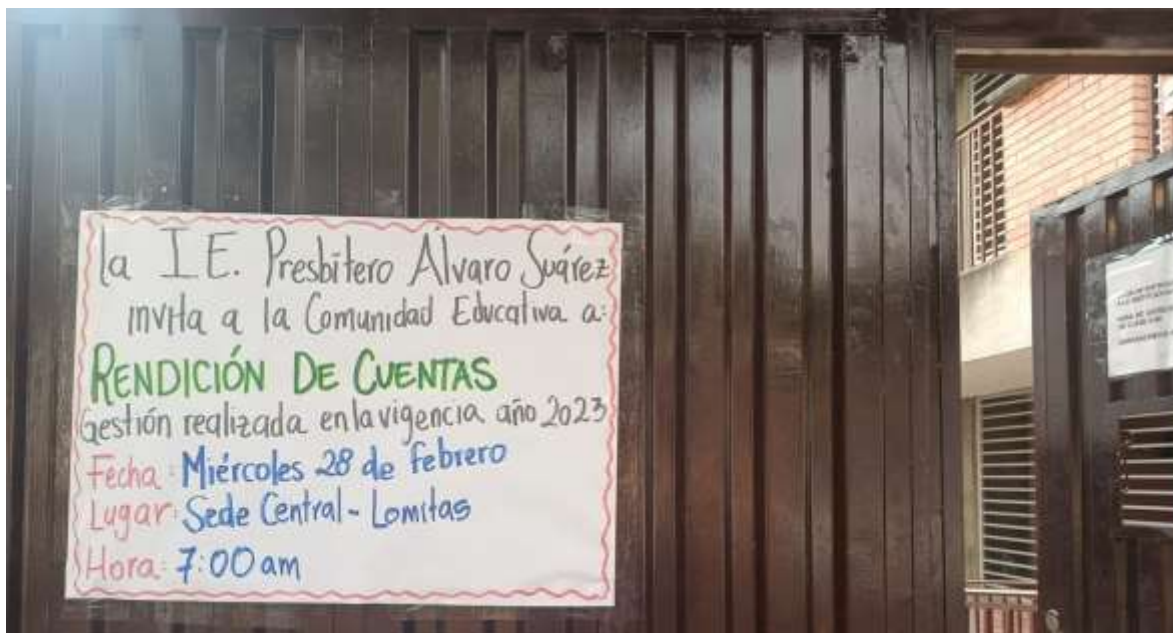 la I.E. Presbitero Alvaro Suárez
invita a la Comunidad Educativa a:
RENDICIÓN DE CUENTAS
Gestión realizada en la vigencia año 2023
Fecha: Miércoles 28 de febrero
Lugar: Sede Central - Lomitas
Hora: 7:00 am